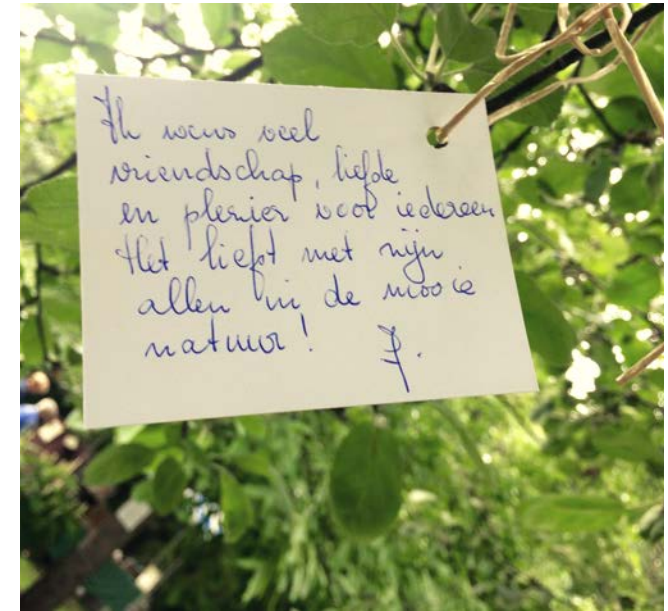 Ik wens veel
vriendschap, liefde
en plezier voor iedereen
Het liefst met zijn
allen in de mooie
natuur! J.